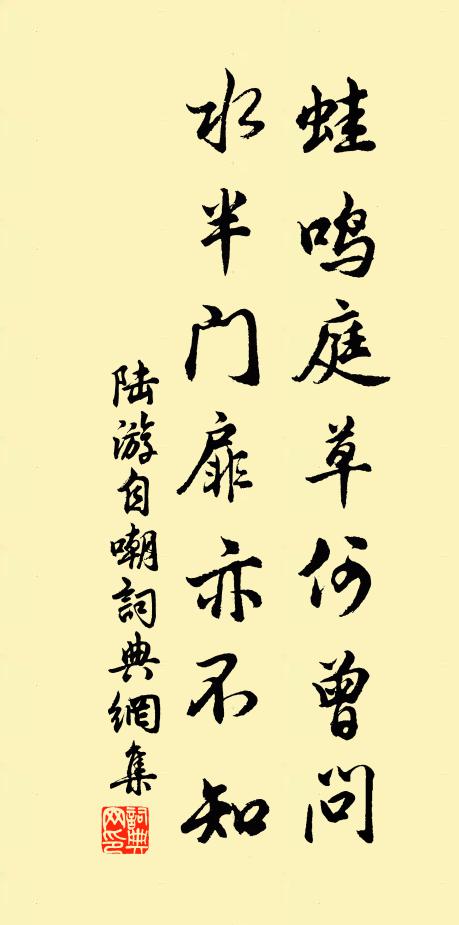 蛙鸣庭草何曾问
水半门扉亦不知
陆游自嘲詞典網集
詞典网印